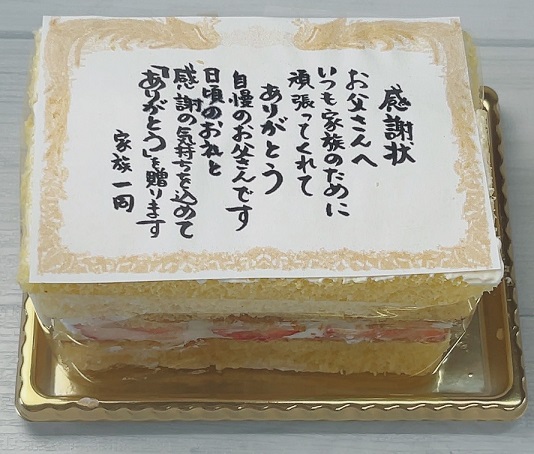 感謝状
お父さんへ
いつも家族のために
頑張ってくれて
ありがとう
自慢のお父さんです
日頃のお礼と
感謝の気持ちを込めて
「ありがとう」を贈ります
家族一同